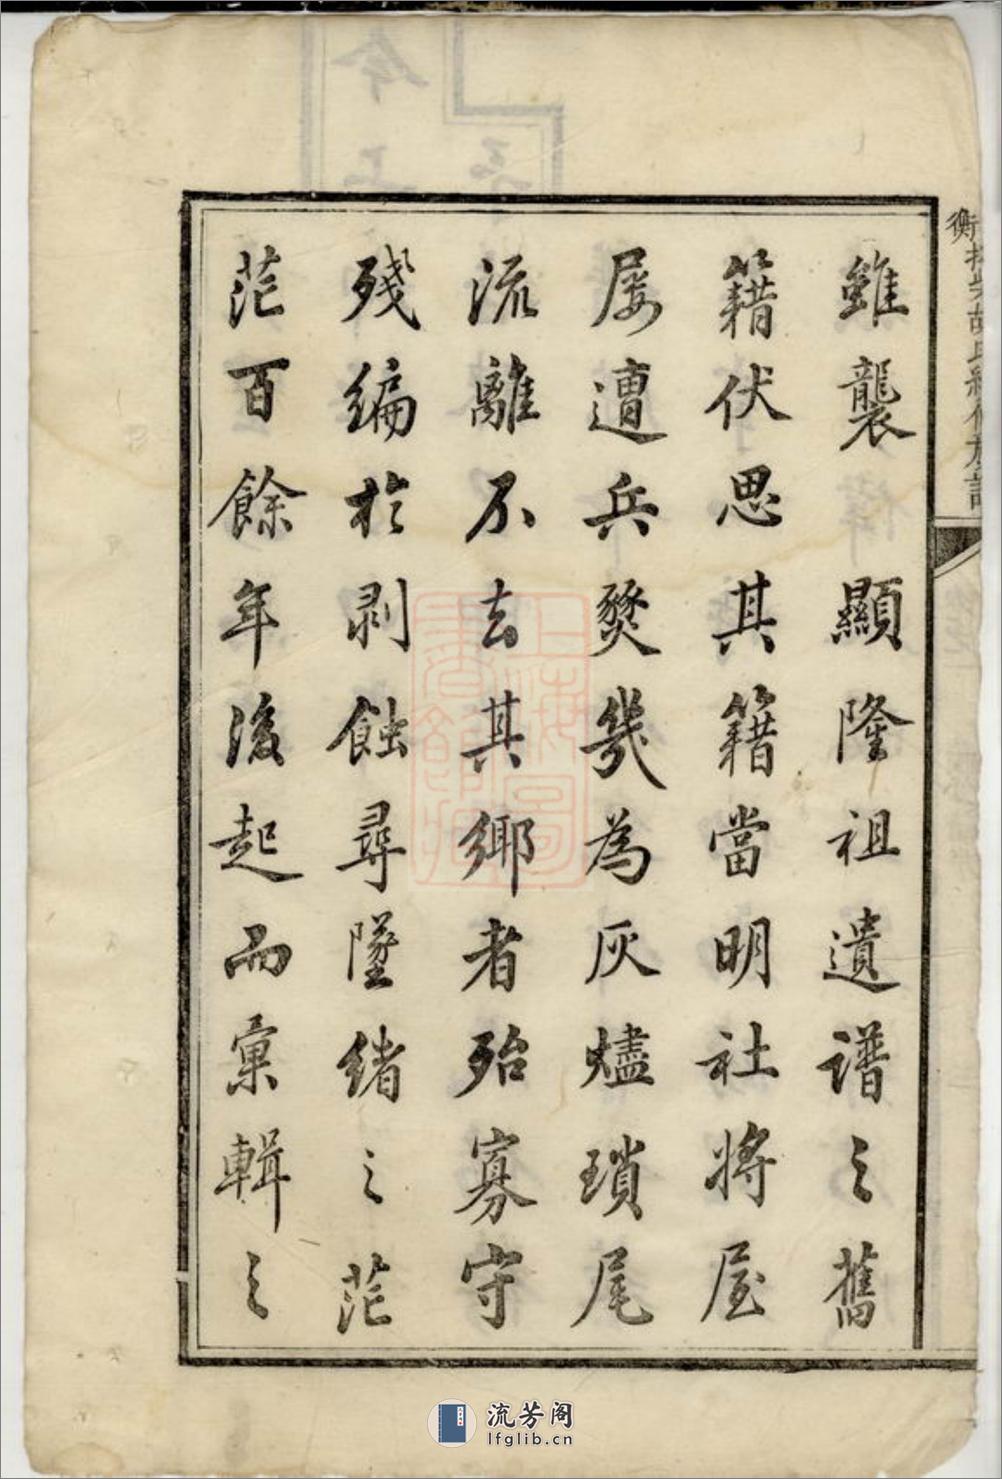 雖襲顯隆祖遺譜之舊
籍伏思其籍當明社將屋
屡遭兵燹幾為灰燼瑣尾
流離不去其鄉者殆寡守
殘編於剥蝕尋墜緒之茫
茫百餘年後起而彙輯之
流芳阁
lfglib.cn